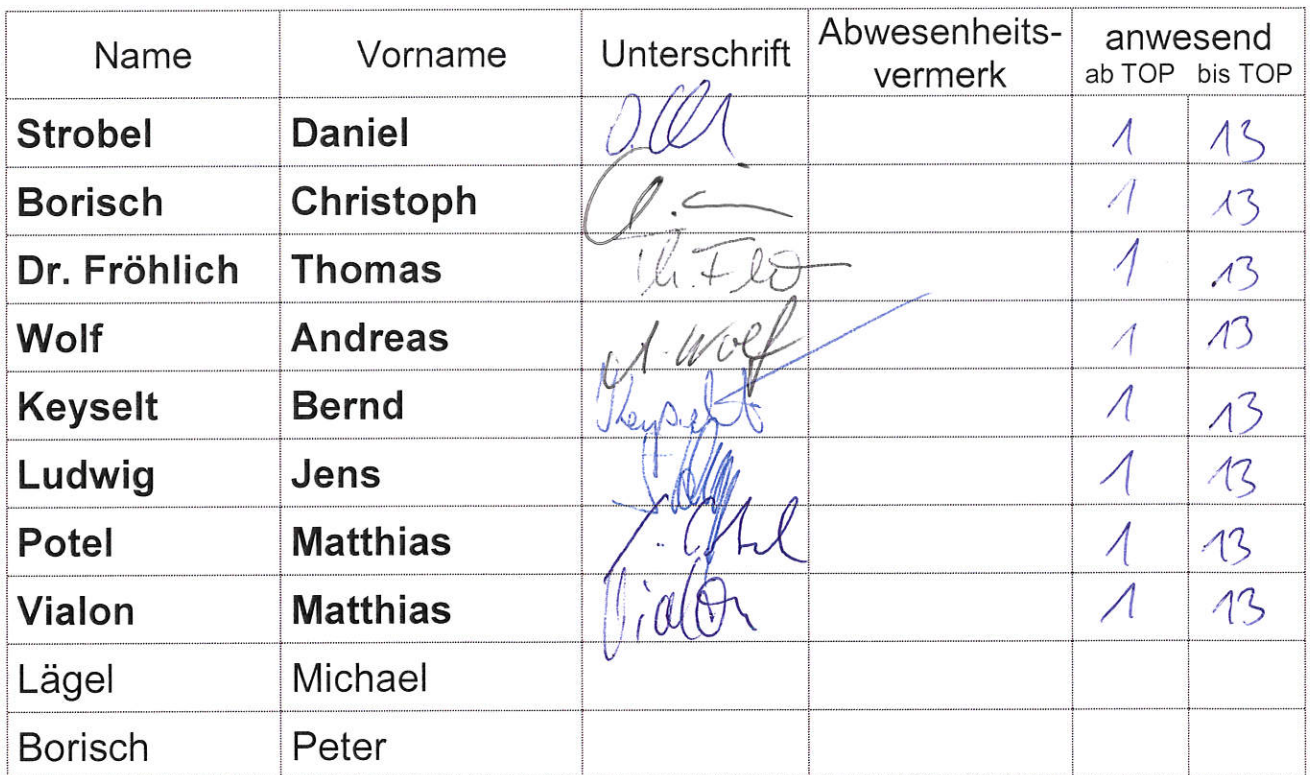 Name Vorname Unterschrift Abwesenheits- anwesend
vermerk ab TOP bis TOP
Strobel Daniel 1 13
Borisch Christoph 1 13
Dr. Fröhlich Thomas 1 13
Wolf Andreas A. Wolf 1 13
Keyselt Bernd Keyselt 1 13
Ludwig Jens 1 13
Potel Matthias 1 13
Vialon Matthias Vialon 1 13
Lägel Michael
Borisch Peter